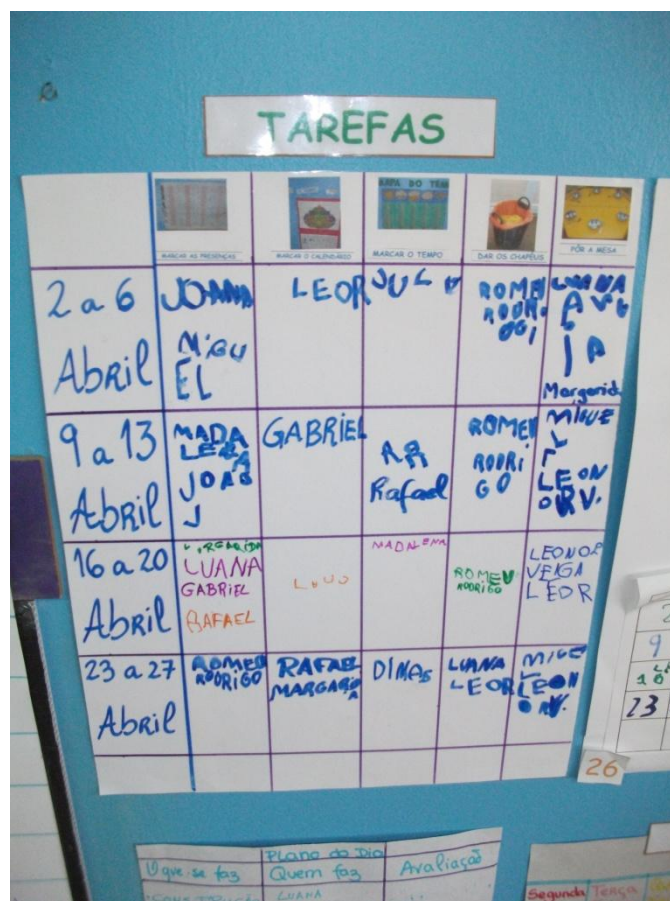 TAREFAS
MARCAR AS PRESENÇAS
MARCAR O CALENDÁRIO
MARCAR O TEMPO
DAR OS CHAPÉUS
PÔR A MESA
MAPA DO TEM
2 a 6
Abril
JOANA
MiGU
EL
LEOR
ROMEU
RODRI
LUANA
Margarid
9 a 13
Abril
MADA
LENA
GABRIEL
Rafael
ROMEU
RODRI
GO
MIGUE
L
LEON
OR V.
16 a 20
Abril
LUANA
GABRIEL
RAFAEL
MADALENA
ROMEU
RODRIGO
LEONOR
VEIGA
LEOR
23 a 27
Abril
ROMEU
RODRIGO
RAFAEL
MARGARID
A
DINAS
LUANA
LEOR
MIGUE
L
LEON
OR V.
26
9
10
23
Plano do Dia
O que se faz
Quem faz
Avaliação
LUANA
Segunda
Terça